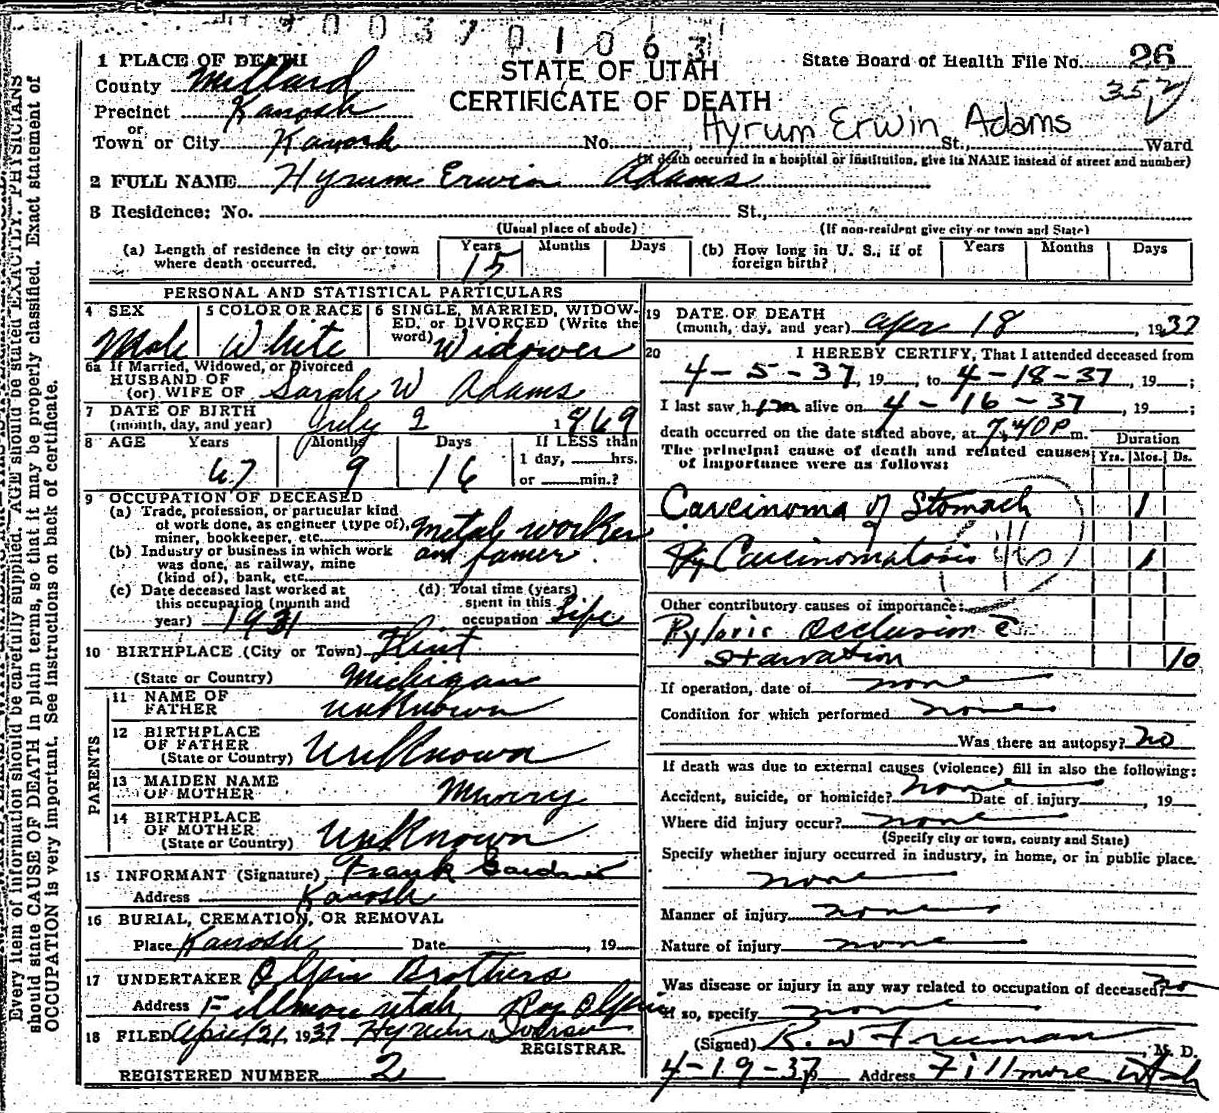 9 0 0 3 7 0 1 0 6 3
1 PLACE OF DEATH
STATE OF UTAH
CERTIFICATE OF DEATH
State Board of Health File No. 26
352
County Millard
Precinct Kanosh
or
Town or City Kanosh No. St., Ward
Hyrum Erwin Adams
(If death occurred in a hospital or institution, give its NAME instead of street and number)
2 FULL NAME Hyrum Erwin Adams
3 Residence: No. St.,
(Usual place of abode) (If non-resident give city or town and State)
(a) Length of residence in city or town where death occurred. Years 15 Months Days
(b) How long in U. S., if of foreign birth? Years Months Days
PERSONAL AND STATISTICAL PARTICULARS
4 SEX Male
5 COLOR OR RACE White
6 SINGLE, MARRIED, WIDOWED, or DIVORCED (Write the word) Widower
6a If Married, Widowed, or Divorced
HUSBAND OF
(or) WIFE OF Sarah W Adams
7 DATE OF BIRTH
(month, day, and year) July 2 1869
8 AGE Years 67 Months 9 Days 16
If LESS than
1 day, hrs.
or min.?
9 OCCUPATION OF DECEASED
(a) Trade, profession, or particular kind
of work done, as engineer (type of),
miner, bookkeeper, etc. Metal worker
and famer
(b) Industry or business in which work
was done, as railway, mine
(kind of), bank, etc.
(c) Date deceased last worked at
this occupation (month and
year) 1931
(d) Total time (years)
spent in this
occupation Life
10 BIRTHPLACE (City or Town) Flint
(State or Country) Michigan
PARENTS
11 NAME OF
FATHER unknown
12 BIRTHPLACE
OF FATHER
(State or Country) Unknown
13 MAIDEN NAME
OF MOTHER Murry
14 BIRTHPLACE
OF MOTHER
(State or Country) Unknown
15 INFORMANT (Signature) Frank
Address Kanosh
16 BURIAL, CREMATION, OR REMOVAL
Place Kanosh Date , 19
17 UNDERTAKER Olpin Brothers
Address Fillmore Utah Roy Olpin
18 FILED April 21, 1937 Hyrum
REGISTRAR.
REGISTERED NUMBER 2
19 DATE OF DEATH
(month, day, and year) Apr 18, 1937
20 I HEREBY CERTIFY, That I attended deceased from
4-5-37, 19 , to 4-18-37, 19 ;
I last saw him alive on 4-16-37, 19 ;
death occurred on the date stated above, at 7.40 P m.
The principal cause of death and related causes
of importance were as follows:
Duration
Yrs. Mos. Ds.
Carcinoma of Stomach 1
Carcinomatosis 1
46
Other contributory causes of importance:
Pyloric Occlusion c̄
Starvation 10
If operation, date of none
Condition for which performed none
Was there an autopsy? no
If death was due to external causes (violence) fill in also the following:
Accident, suicide, or homicide? none Date of injury , 19
Where did injury occur? none
(Specify city or town, county and State)
Specify whether injury occurred in industry, in home, or in public place.
none
Manner of injury none
Nature of injury none
Was disease or injury in any way related to occupation of deceased? no
If so, specify none
(Signed) R. W Freeman M. D.
4-19-37 Address Fillmore Utah
Every item of information should be carefully supplied. AGE should be stated EXACTLY. PHYSICIANS
should state CAUSE OF DEATH in plain terms, so that it may be properly classified. Exact statement of
OCCUPATION is very important. See instructions on back of certificate.